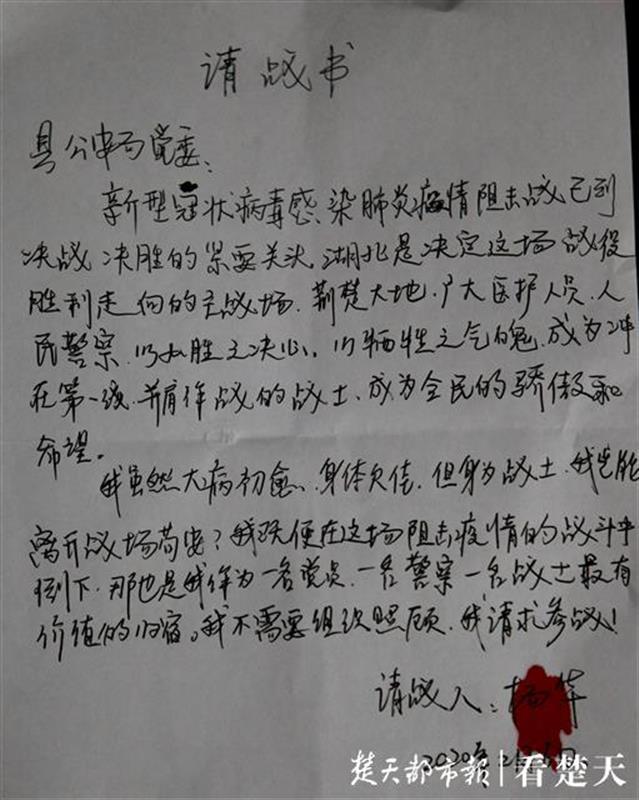 请战书
县公安局党委:
新型冠状病毒感染肺炎疫情阻击战已到
决战、决胜的紧要关头,湖北是决定这场战役
胜利走向的主战场。荆楚大地,广大医护人员、人
民警察,以必胜之决心、以牺牲之气魄,成为冲
在第一线、并肩作战的战士、成为全民的骄傲和
希望。
我虽然大病初愈、身体欠佳,但身为战士,我岂能
离开战场苟安?我既便在这场阻击疫情的战斗中
倒下,那也是我作为一名党员、一名警察一名战士最有
价值的归宿。我不需要组织照顾,我请求参战!
请战人:杨华
2020年2月6日
楚天都市报 | 看楚天